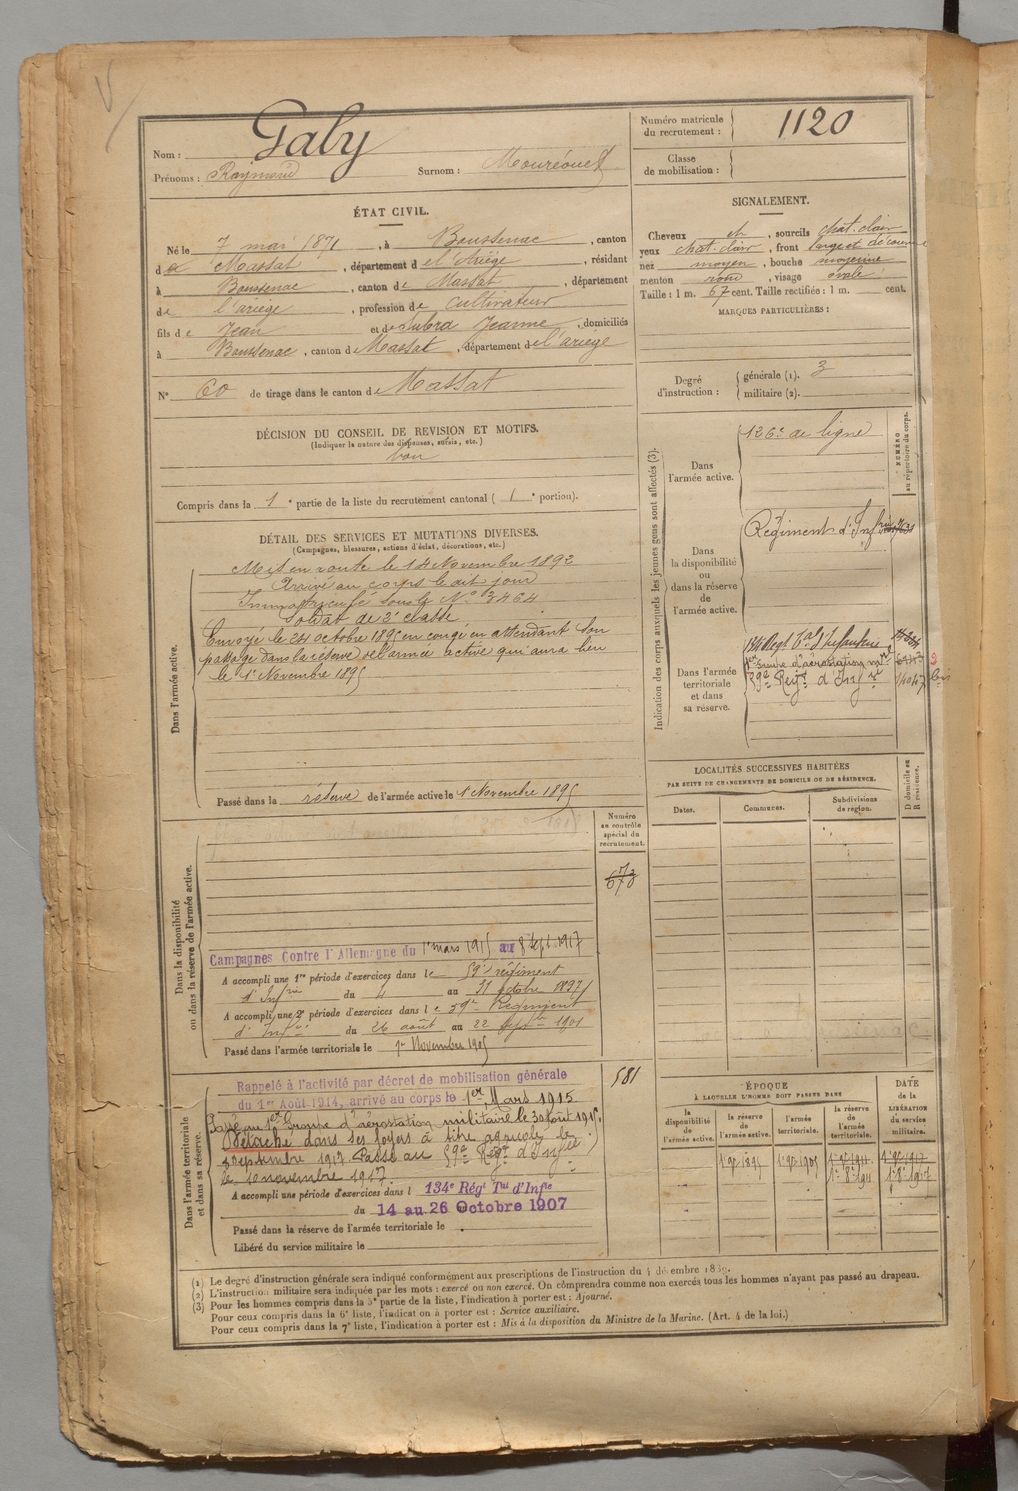 Nom : Galy
Prénoms : Raymond Surnom : Mouréouet
Numéro matricule du recrutement : 1120
Classe de mobilisation :
ÉTAT CIVIL.
Né le 7 mai 1871, à Boussenac, canton
de Massat, département de l'Ariège, résidant
à Boussenac, canton de Massat, département
de l'ariège, profession de cultivateur
fils de Jean et de Subra Jeanne, domiciliés
à Boussenac, canton de Massat, département de l'ariège
N° 60 de tirage dans le canton de Massat
SIGNALEMENT.
Cheveux ch, sourcils chat. clair
yeux chat. clair, front large et découvert
nez moyen, bouche moyenne
menton rond, visage ovale
Taille : 1 m. 67 cent. Taille rectifiée : 1 m. cent.
MARQUES PARTICULIÈRES :
Degré d'instruction : générale (1). 3
militaire (2).
DÉCISION DU CONSEIL DE REVISION ET MOTIFS.
(Indiquer la nature des dispenses, sursis, etc.)
bon
Compris dans la 1e partie de la liste du recrutement cantonal ( 1e portion).
DÉTAIL DES SERVICES ET MUTATIONS DIVERSES.
(Campagnes, blessures, actions d'éclat, décorations, etc.)
Dans l'armée active.
Mis en route le 14 Novembre 1892
Arrivé au corps le dit jour
Immatriculé sous le N° 3464
Soldat de 2e classe
Envoyé le 24 octobre 1895 en congé en attendant son
passage dans la réserve de l'armée active qui aura lieu
le 1e Novembre 1895
Passé dans la réserve de l'armée active le 1 Novembre 1895
Indication des corps auxquels les jeunes gens sont affectés (3).
NUMÉRO au répertoire du corps.
Dans l'armée active.
126e de ligne
Dans la disponibilité ou dans la réserve de l'armée active.
Régiment d'Infrie
Dans l'armée territoriale et dans sa réserve.
134 Regt tal d'Infanterie
1er Groupe d'aérostation mre
59e Regt d'Infrie
LOCALITÉS SUCCESSIVES HABITÉES
PAR SUITE DE CHANGEMENTS DE DOMICILE OU DE RÉSIDENCE.
Dates. Communes. Subdivisions de région. D domicile ou R résidence.
Dans la disponibilité ou dans la réserve de l'armée active.
Numéro au contrôle spécial du recrutement.
Campagnes Contre l'Allemagne du 1e mars 1915 au 8 Sept. 1917
A accompli une 1re période d'exercices dans le 59e régiment
d'Infrie du 4 au 31 octobre 1897
A accompli une 2e période d'exercices dans le 59e Regiment
d'Infrie du 26 août au 22 septbre 1901
Passé dans l'armée territoriale le 1er Novembre 1905
Dans l'armée territoriale et dans sa réserve.
581
Rappelé à l'activité par décret de mobilisation générale
du 1er Août 1914, arrivé au corps le 1er Mars 1915
Passé au 1er Groupe d'aérostation militaire le 30 août 1915.
Détaché dans ses foyers à titre agricole le
septembre 1917 Passé au 59e Regt d'Infie
le 10 novembre 1917.
A accompli une période d'exercices dans l 134e Régt Tal d'Infie
du 14 au 26 Octobre 1907
Passé dans la réserve de l'armée territoriale le
Libéré du service militaire le
ÉPOQUE
À LAQUELLE L'HOMME DOIT PASSER DANS
la disponibilité de l'armée active. la réserve de l'armée active. l'armée territoriale. la réserve de l'armée territoriale.
DATE de la LIBÉRATION du service militaire.
1e 9e 1895 1e 9e 1905 1e 9e 1911 1e 9e 1917
(1) Le degré d'instruction générale sera indiqué conformément aux prescriptions de l'instruction du 4 décembre 1889.
(2) L'instruction militaire sera indiquée par les mots : exercé ou non exercé. On comprendra comme non exercés tous les hommes n'ayant pas passé au drapeau.
(3) Pour les hommes compris dans la 5e partie de la liste, l'indication à porter est : Ajourné.
Pour ceux compris dans la 6e liste, l'indication à porter est : Service auxiliaire.
Pour ceux compris dans la 7e liste, l'indication à porter est : Mis à la disposition du Ministre de la Marine. (Art. 4 de la loi.)